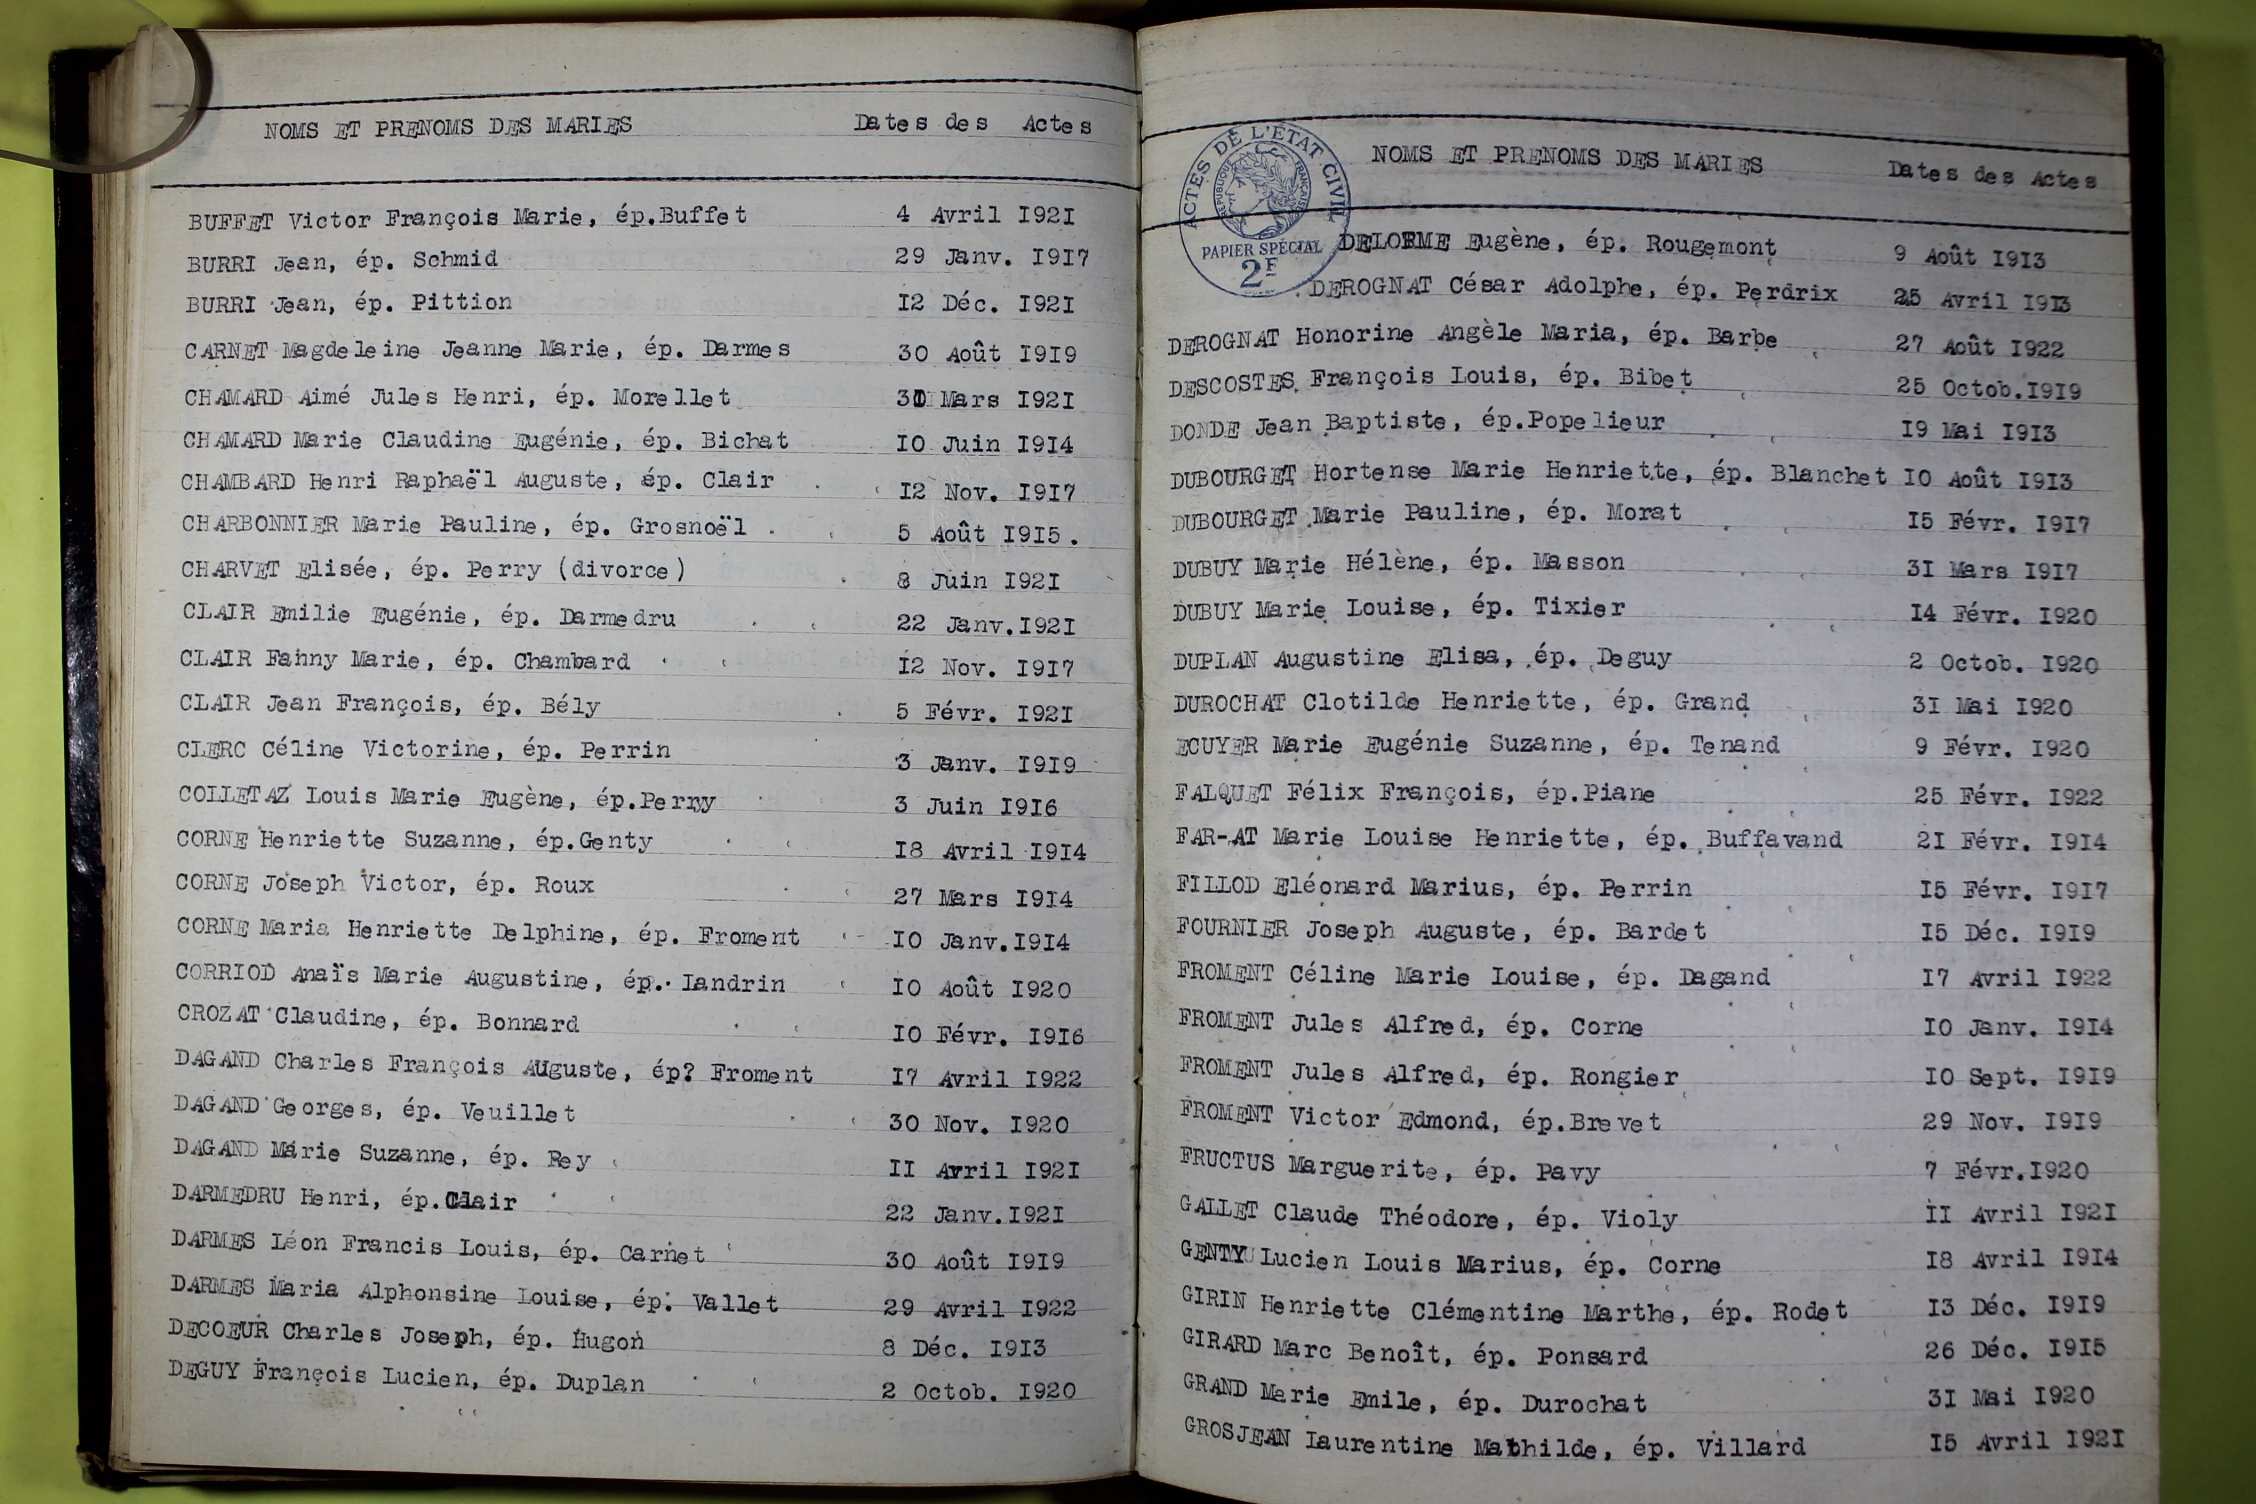 NOMS ET PRENOMS DES MARIES Dates des Actes
BUFFET Victor François Marie, ép.Buffet 4 Avril I92I
BURRI Jean, ép. Schmid 29 Janv. I9I7
BURRI Jean, ép. Pittion I2 Déc. I92I
CARNET Magdeleine Jeanne Marie, ép. Darmes 30 Août I9I9
CHAMARD Aimé Jules Henri, ép. Morellet Mars I92I
CHAMARD Marie Claudine Eugénie, ép. Bichat IO Juin I9I4
CHAMBARD Henri Raphaël Auguste, ép. Clair I2 Nov. I9I7
CHARBONNIER Marie Pauline, ép. Grosnoël 5 Août I9I5.
CHARVET Elisée, ép. Perry (divorce) 8 Juin I92I
CLAIR Emilie Eugénie, ép. Darmedru 22 Janv.I92I
CLAIR Fanny Marie, ép. Chambard I2 Nov. I9I7
CLAIR Jean François, ép. Bély 5 Févr. I92I
CLERC Céline Victorine, ép. Perrin 3 Janv. I9I9
COLLETAZ Louis Marie Eugène, ép.Perry 3 Juin I9I6
CORNE Henriette Suzanne, ép.Genty I8 Avril I9I4
CORNE Joseph Victor, ép. Roux 27 Mars I9I4
CORNE Maria Henriette Delphine, ép. Froment IO Janv.I9I4
CORRIOD Anaïs Marie Augustine, ép. Landrin IO Août I920
CROZAT Claudine, ép. Bonnard IO Févr. I9I6
DAGAND Charles François AUguste, ép? Froment I7 Avril I922
DAGAND Georges, ép. Veuillet 30 Nov. I920
DAGAND Marie Suzanne, ép. Rey II Avril I92I
DARMEDRU Henri, ép.Clair 22 Janv.I92I
DARMES Léon Francis Louis, ép. Carnet 30 Août I9I9
DARMES Maria Alphonsine Louise, ép. Vallet 29 Avril I922
DECOEUR Charles Joseph, ép. Hugon 8 Déc. I9I3
DEGUY François Lucien, ép. Duplan 2 Octob. I920
ACTES DE L'ÉTAT CIVIL
RÉPUBLIQUE FRANÇAISE
PAPIER SPÉCIAL
2F
NOMS ET PRENOMS DES MARIES Dates des Actes
DELORME Eugène, ép. Rougemont 9 Août I9I3
DEROGNAT César Adolphe, ép. Perdrix 25 Avril I9I3
DEROGNAT Honorine Angèle Maria, ép. Barbe 27 Août I922
DESCOSTES François Louis, ép. Bibet 25 Octob.I9I9
DONDE Jean Baptiste, ép.Popelieur I9 Mai I9I3
DUBOURGET Hortense Marie Henriette, ép. Blanchet IO Août I9I3
DUBOURGET Marie Pauline, ép. Morat I5 Févr. I9I7
DUBUY Marie Hélène, ép. Masson 3I Mars I9I7
DUBUY Marie Louise, ép. Tixier I4 Févr. I920
DUPLAN Augustine Elisa, ép. Deguy 2 Octob. I920
DUROCHAT Clotilde Henriette, ép. Grand 3I Mai I920
ECUYER Marie Eugénie Suzanne, ép. Tenand 9 Févr. I920
FALQUET Félix François, ép.Piane 25 Févr. I922
FAR-AT Marie Louise Henriette, ép. Buffavand 2I Févr. I9I4
FILLOD Eléonard Marius, ép. Perrin I5 Févr. I9I7
FOURNIER Joseph Auguste, ép. Bardet I5 Déc. I9I9
FROMENT Céline Marie Louise, ép. Dagand I7 Avril I922
FROMENT Jules Alfred, ép. Corne IO Janv. I9I4
FROMENT Jules Alfred, ép. Rongier IO Sept. I9I9
FROMENT Victor Edmond, ép.Brevet 29 Nov. I9I9
FRUCTUS Marguerite, ép. Pavy 7 Févr.I920
GALLET Claude Théodore, ép. Violy II Avril I92I
GENTY Lucien Louis Marius, ép. Corne I8 Avril I9I4
GIRIN Henriette Clémentine Marthe, ép. Rodet I3 Déc. I9I9
GIRARD Marc Benoît, ép. Ponsard 26 Déc. I9I5
GRAND Marie Emile, ép. Durochat 3I Mai I920
GROSJEAN Laurentine Mathilde, ép. Villard I5 Avril I92I